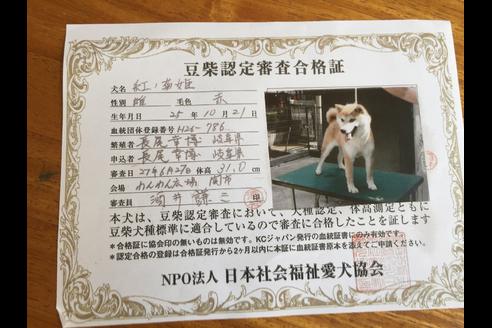 豆柴認定審査合格証
犬名 紅ノ 姫
性別 雌 毛色 赤
生年月日 25年10月21日
血統団体登録番号 H26-786
繁殖者 長尾幸博 岐阜県
申込者 長尾幸博 岐阜県
審査日 27年6月27日 体高 31.0cm
会場 わんわん広場 関市
審査員 酒井 三 印
本犬は、豆柴認定審査において、犬種認定、体高測定ともに
豆柴犬種標準に適合しているので審査に合格したことを証します
*合格証に協会印の無いものは無効です。KCジャパン発行の血統証書にのみ有効です。
*認定合格の登録は合格証発行から2ヶ月以内に本証に血統証書原本を添えてご申請ください。
NPO法人 日本社会福祉愛犬協会